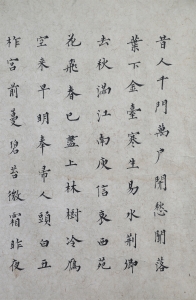 昔人千門萬戶開愁聞落
葉下金臺寒生易水荆卿
去秋滿江南庾信哀西苑
花飛春已盡上林樹冷鴈
空来早明奉帚人頭白五
柞宮前蔓碧苔微霜昨夜